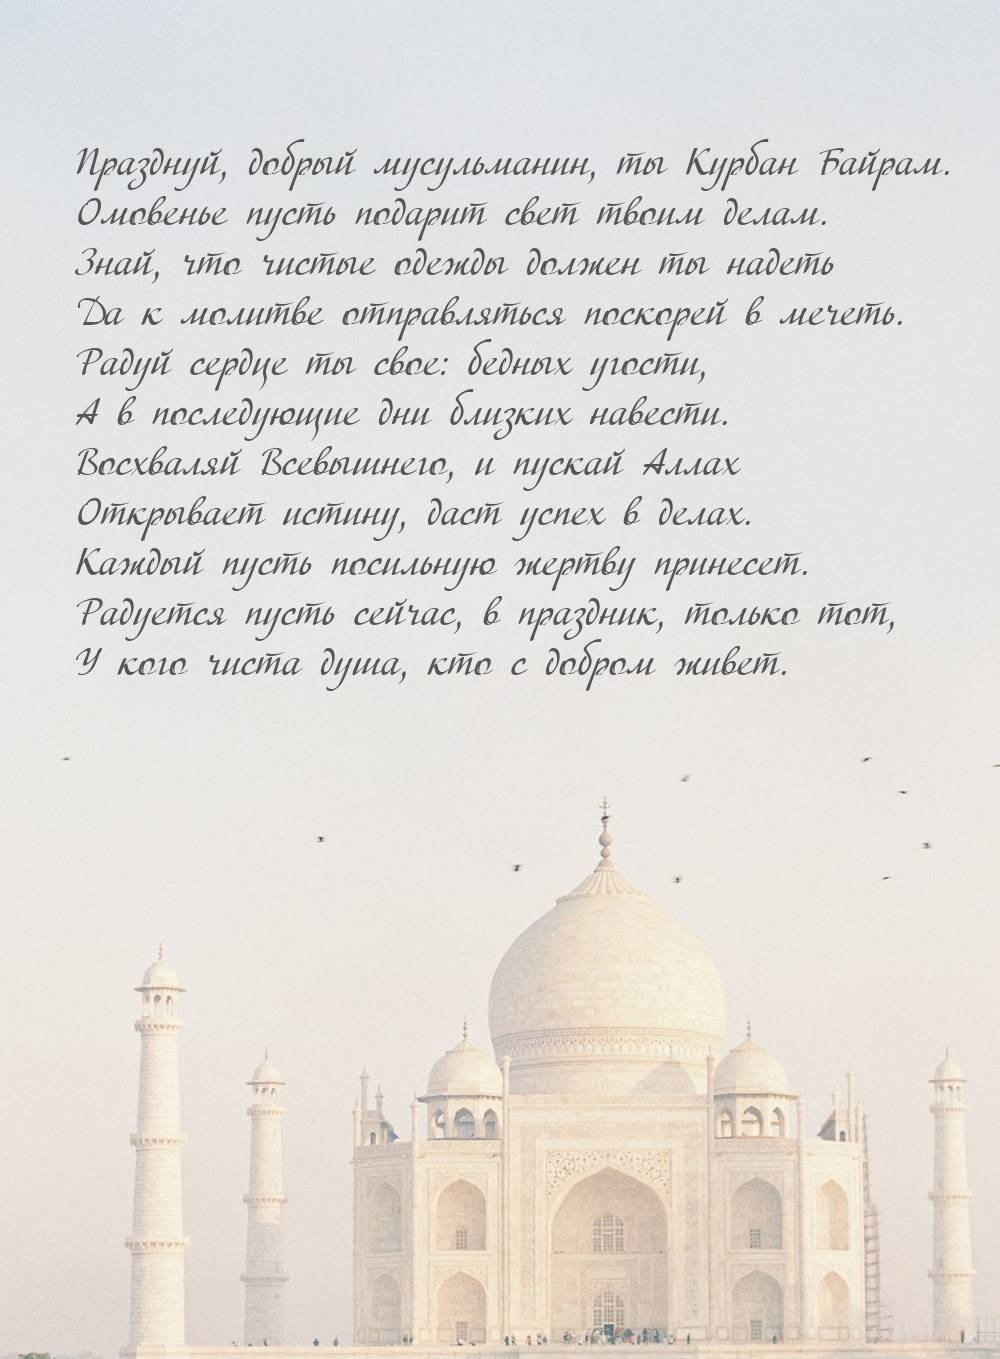 Празднуй, добрый мусульманин, ты Курбан Байрам.
Омовенье пусть подарит свет твоим делам.
Знай, что чистые одежды должен ты надеть
Да к молитве отправляться поскорей в мечеть.
Радуй сердце ты свое: бедных угости,
А в последующие дни близких навести.
Восхваляй Всевышнего, и пускай Аллах
Открывает истину, даст успех в делах.
Каждый пусть посильную жертву принесет.
Радуется пусть сейчас, в праздник, только тот,
У кого чиста душа, кто с добром живет.